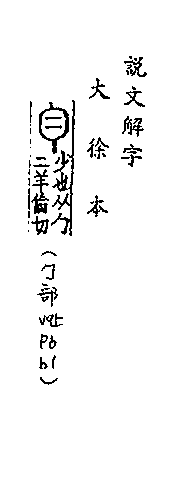 說文解字
大徐本
少也从勹
二羊倫切
(勹部